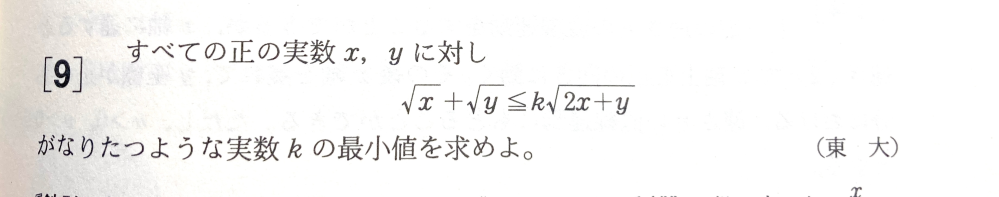 [9] すべての正の実数 x, y に対し
√x + √y ≦ k√(2x+y)
がなりたつような実数 k の最小値を求めよ。 (東 大)
x